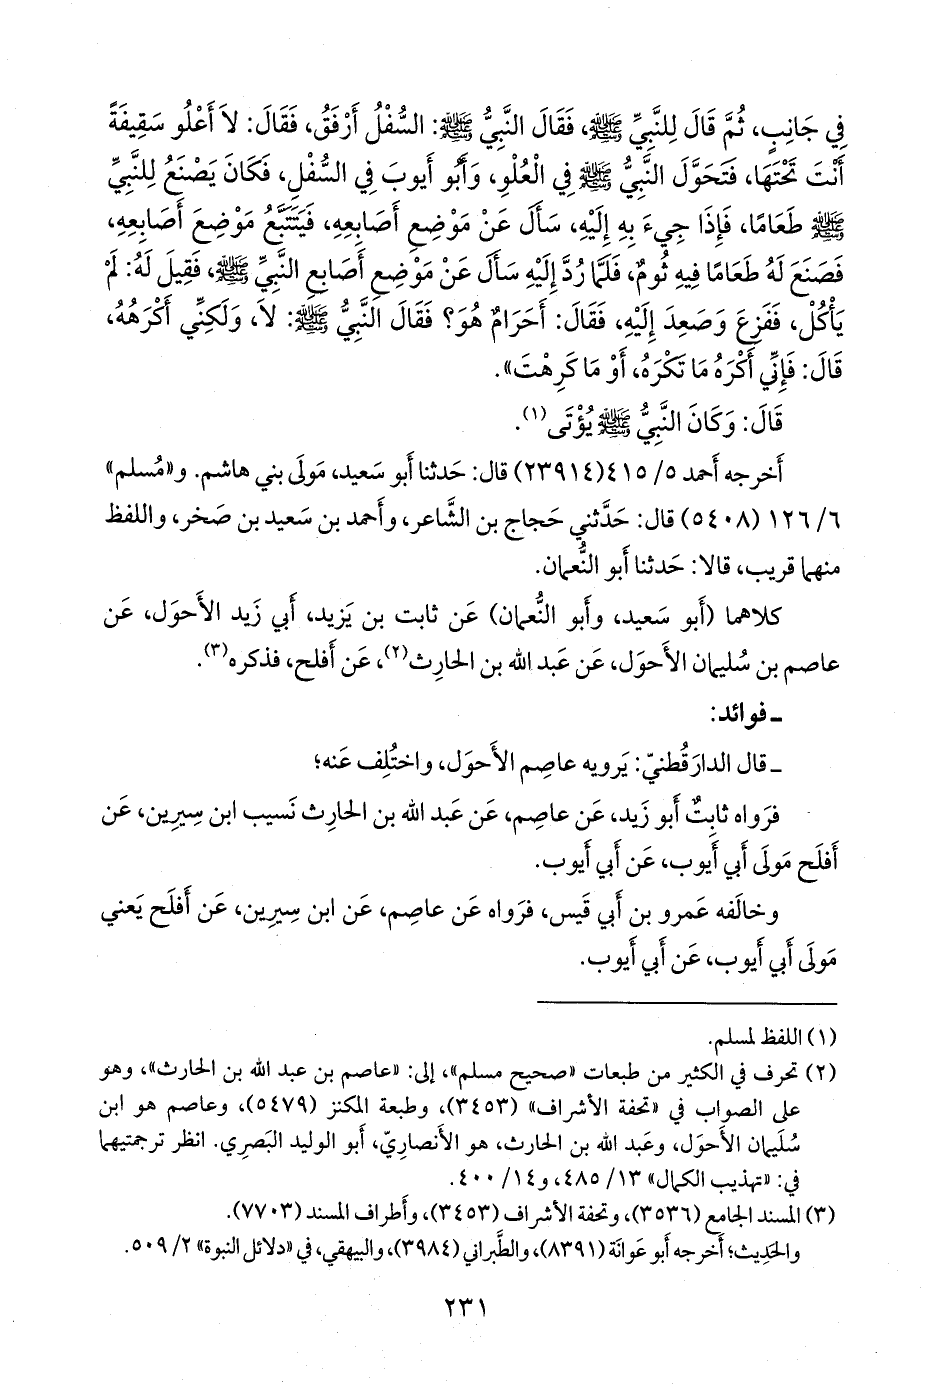 فِي جَانِبٍ، ثُمَّ قَالَ لِلنَّبِيِّ ﷺ، فَقَالَ النَّبِيُّ ﷺ: السُّفْلُ أَرْفَقُ، فَقَالَ: لاَ أَعْلُو سَقِيفَةً
أَنْتَ تَحْتَهَا، فَتَحَوَّلَ النَّبِيُّ ﷺ فِي الْعُلْوِ، وَأَبُو أَيوبَ فِي السُّفْلِ، فَكَانَ يَصْنَعُ لِلنَّبِيِّ
ﷺ طَعَامًا، فَإِذَا جِيءَ بِهِ إِلَيْهِ، سَأَلَ عَنْ مَوْضِعِ أَصَابِعِهِ، فَيَتَتَبَّعُ مَوْضِعَ أَصَابِعِهِ،
فَصَنَعَ لَهُ طَعَامًا فِيهِ ثُومٌ، فَلَمَّا رُدَّ إِلَيْهِ سَأَلَ عَنْ مَوْضِعِ أَصَابِعِ النَّبِيِّ ﷺ، فَقِيلَ لَهُ: لَمْ
يَأْكُلْ، فَفَزِعَ وَصَعِدَ إِلَيْهِ، فَقَالَ: أَحَرَامٌ هُوَ؟ فَقَالَ النَّبِيُّ ﷺ: لاَ، وَلَكِنِّي أَكْرَهُهُ،
قَالَ: فَإِنِّي أَكْرَهُ مَا تَكْرَهُ، أَوْ مَا كَرِهْتَ».
قَالَ: وَكَانَ النَّبِيُّ ﷺ يُؤْتَى(١).
أَخرجه أَحمد ٥/ ٤١٥(٢٣٩١٤) قال: حَدثنا أَبو سَعيد، مَولَى بني هاشم. و«مُسلم»
٦/ ١٢٦ (٥٤٠٨) قال: حَدَّثني حَجاج بن الشَّاعر، وأَحمد بن سَعيد بن صَخر، واللفظ
منهما قريب، قالا: حَدثنا أَبو النُّعمان.
كلاهما (أَبو سَعيد، وأَبو النُّعمان) عَن ثابت بن يَزيد، أَبي زَيد الأَحوَل، عَن
عاصم بن سُليمان الأَحوَل، عَن عَبد الله بن الحارِث(٢)، عَن أَفلح، فذكره(٣).
ـ فوائد:
ـ قال الدارَقُطنيّ: يَرويه عاصِم الأَحوَل، واختُلِف عَنه؛
فرَواه ثابِتٌ أَبو زَيد، عَن عاصِم، عَن عَبد الله بن الحارِث نَسيب ابن سِيرِين، عَن
أَفلَح مَولَى أَبي أَيوب، عَن أَبي أَيوب.
وخالَفه عَمرو بن أَبي قَيس، فرَواه عَن عاصِم، عَن ابن سِيرِين، عَن أَفلَح يَعني
مَولَى أَبي أَيوب، عَن أَبي أَيوب.
(١) اللفظ لمسلم.
(٢) تحرف في الكثير من طبعات «صحيح مسلم»، إلى: «عاصم بن عبد الله بن الحارث»، وهو
على الصواب في «تحفة الأشراف» (٣٤٥٣)، وطبعة المكنز (٥٤٧٩)، وعاصم هو ابن
سُلَيمان الأَحوَل، وعَبد الله بن الحارث، هو الأَنصاريّ، أَبو الوليد البَصري. انظر ترجمتيهما
في: «تهذيب الكمال» ١٣/ ٤٨٥، و١٤/ ٤٠٠.
(٣) المسند الجامع (٣٥٣٦)، وتحفة الأشراف (٣٤٥٣)، وأَطراف المسند (٧٧٠٣).
والحَدِيث؛ أَخرجه أَبو عَوانَة (٨٣٩١)، والطَّبراني (٣٩٨٤)، والبيهقي، في «دلائل النبوة» ٢/ ٥٠٩.
٢٣١